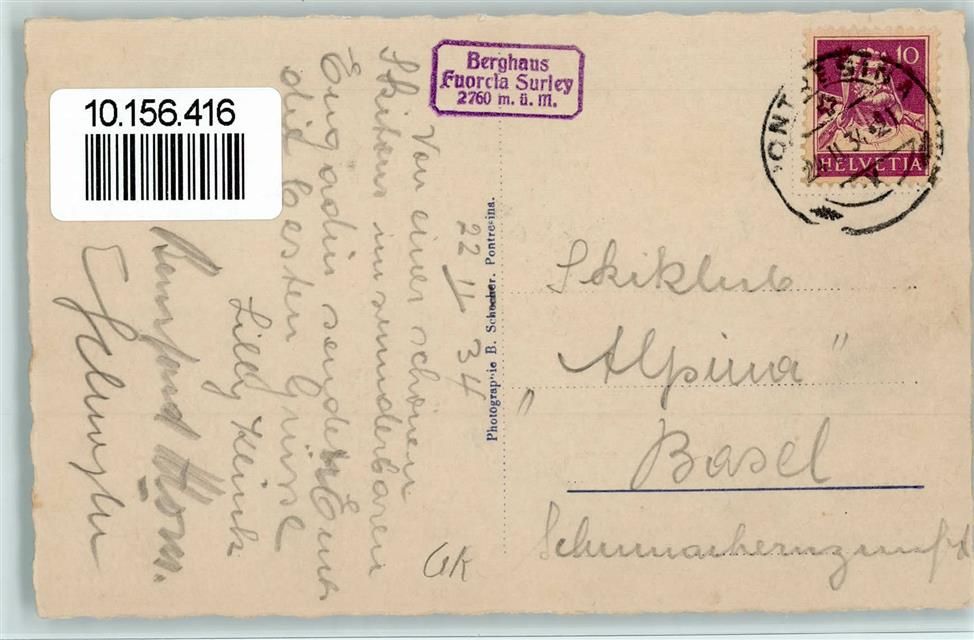 10.156.416
Berghaus
Fuorcla Surley
2760 m. ü. M.
10
HELVETIA
PONTRESINA
22 II 34
Von einer schönen
Skitour im wunderbaren
Engadin sendet Euch
die besten Grüsse
Lilly
Photographie B. Schocher. Pontresina.
Skiklub
„Alpina"
Basel
Schumachernzunft
GK